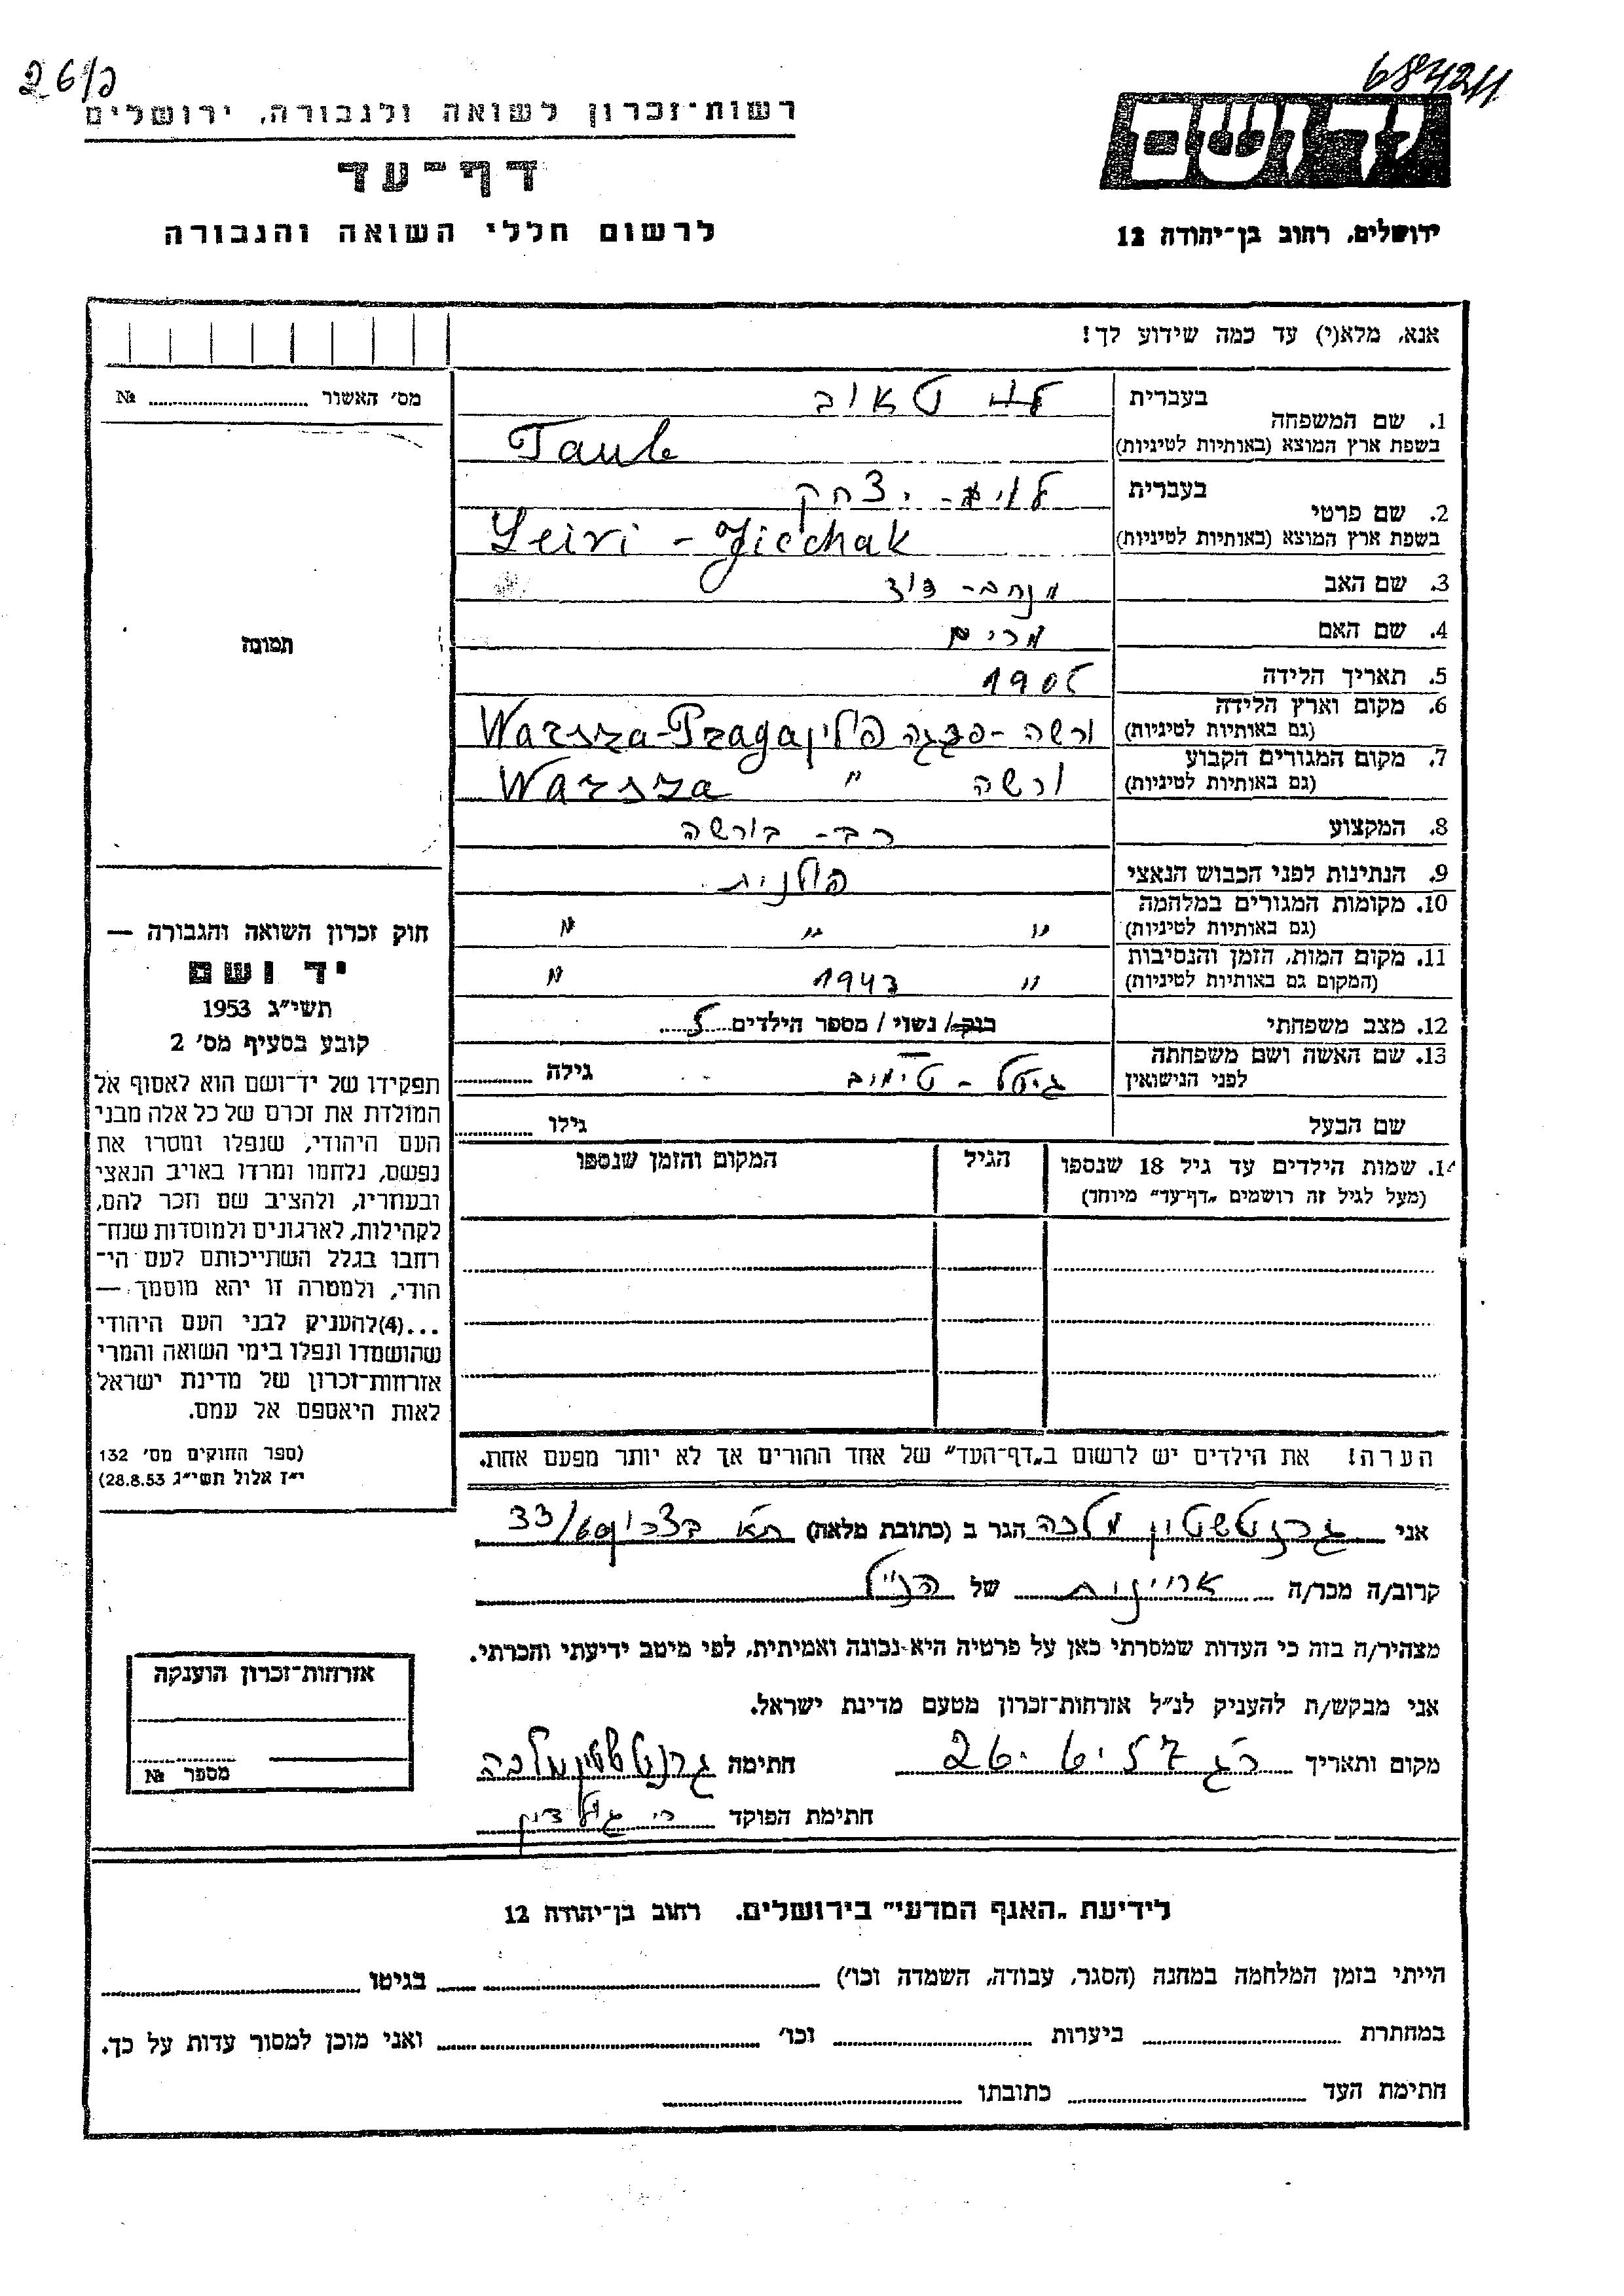 26/כ
684211
רשות-זכרון לשואה ולגבורה, ירושלים
דף-עד
לרשום חללי השואה והגבורה
ידושם
ירושלים, רחוב בן-יהודה 12
אנא, מלא(י) עד כמה שידוע לך!
מס' האשור № 
1. שם המשפחה
בעברית טאוב
בשפת ארץ המוצא (באותיות לטיניות) Taub
2. שם פרטי
בעברית יצחק
בשפת ארץ המוצא (באותיות לטיניות) Leivi - Jicchak
3. שם האב דוד
4. שם האם מרים
5. תאריך הלידה
6. מקום וארץ הלידה
(גם באותיות לטיניות) ורשה - פרגה פולין Warsza-Praga
7. מקום המגורים הקבוע
(גם באותיות לטיניות) ורשה " Warsza
8. המקצוע רב - בורשה
9. הנתינות לפני הכבוש הנאצי פולנית
10. מקומות המגורים במלחמה
(גם באותיות לטיניות) " " "
11. מקום המות, הזמן והנסיבות
(המקום גם באותיות לטיניות) " 1943 "
12. מצב משפחתי רווק/ נשוי / מספר הילדים 5
13. שם האשה ושם משפחתה
לפני הנישואין גיטל - גילה
שם הבעל גילו
14. שמות הילדים עד גיל 18 שנספו
(מעל לגיל זה רושמים „דף-עד" מיוחד)
הגיל
המקום והזמן שנספו
הערה! את הילדים יש לרשום ב„דף-העד" של אחד ההורים אך לא יותר מפעם אחת.
תמונה
חוק זכרון השואה והגבורה —
יד ושם
תשי״ג 1953
קובע בסעיף מס' 2
תפקידו של יד-ושם הוא לאסוף אל
המולדת את זכרם של כל אלה מבני
העם היהודי, שנפלו ומסרו את
נפשם, נלחמו ומרדו באויב הנאצי
ובעוזריו, ולהציב שם וזכר להם,
לקהילות, לארגונים ולמוסדות שנח-
רבו בגלל השתייכותם לעם הי-
הודי, ולמטרה זו יהא מוסמך —
...(4)להעניק לבני העם היהודי
שהושמדו ונפלו בימי השואה והמרי
אזרחות-זכרון של מדינת ישראל
לאות היאספם אל עמם.
(ספר החוקים מס' 132
י״ז אלול תשי״ג 28.8.53)
אני מלכה הגר ב (כתובת מלאה) 33/
קרוב/ה מכר/ה של הנ״ל
מצהיר/ה בזה כי העדות שמסרתי כאן על פרטיה היא נכונה ואמיתית, לפי מיטב ידיעתי והכרתי.
אני מבקש/ת להעניק לנ״ל אזרחות-זכרון מטעם מדינת ישראל.
מקום ותאריך חתימה מלכה
חתימת הפוקד
אזרחות-זכרון הוענקה
מספר №
לידיעת „האגף המדעי" בירושלים, רחוב בן-יהודה 12
הייתי בזמן המלחמה במחנה (הסגר, עבודה, השמדה וכו') בגיטו
במחתרת ביערות וכו' ואני מוכן למסור עדות על כך.
חתימת העד כתובתו